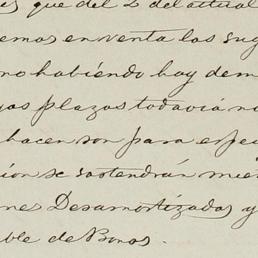 que del 2 del actual
emos en venta las sug
no habiendo hoy dem
as plazas todavia no
hacen son para espe
ión se sostendrán mien
nes Desamortizados y
ble de Bonos.